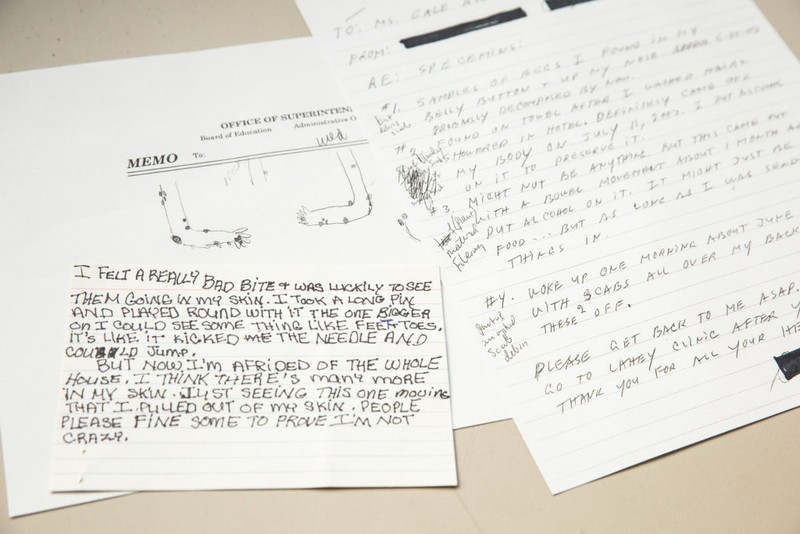 OFFICE OF SUPERINTEN
Board of Education Administrative O
MEMO To: wed
I FELT A REALLY BAD BITE + WAS LUCKILY TO SEE
THEM GOING IN MY SKIN. I TOOK A LONG PIN
AND PLAYED ROUND WITH IT THE ONE BIGGER
ON I COULD SEE SOME THING LIKE FEET+TOES.
IT'S LIKE IT KICKED ME THE NEEDLE AND
COULD JUMP.
BUT NOW I'M AFRIDED OF THE WHOLE
HOUSE. I THINK THERE'S MANY MORE
IN MY SKIN. JUST SEEING THIS ONE MOVING
THAT I PULLED OUT OF MY SKIN. PEOPLE
PLEASE FINE SOME TO PROVE I'M NOT
CRAZY.
TO: MS. GALE
FROM:
RE: SPECEMINS:
#1. SAMPLES OF BUGS I FOUND IN MY
BELLY BUTTON + UP MY NOSE
PROBABLY DECOMPOSED BY NOW.
#2. FOUND ON TOWEL AFTER I WASHED
SHOWERED IN HOTEL. DEFINITELY CAME OFF
MY BODY ON JULY 11, 2007. I PUT ALCOHOL
ON IT TO PRESERVE IT.
#3. MIGHT NOT BE ANYTHING BUT THIS CAME OUT
WITH A BOWEL MOVEMENT ABOUT 1 MONTH A
PUT ALCOHOL ON IT. IT MIGHT JUST BE
FOOD... BUT AS LONG AS I WAS SEND
THINGS IN.
#4. WOKE UP ONE MORNING ABOUT JUNE
WITH 3 SCABS ALL OVER MY BACK
THESE 2 OFF.
PLEASE GET BACK TO ME ASAP.
GO TO LAHEY CLINIC AFTER Y
THANK YOU FOR ALL YOUR HE